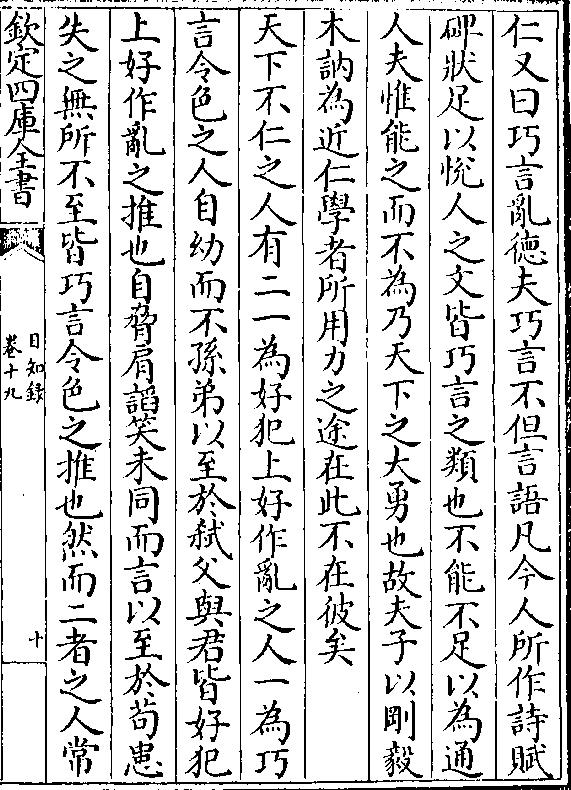 仁又曰巧言亂德夫巧言不但言語凡今人所作詩賦
碑狀足以悅人之文皆巧言之類也不能不足以為通
人夫惟能之而不為乃天下之大勇也故夫子以剛毅
木訥為近仁學者所用力之途在此不在彼矣
天下不仁之人有二一為好犯上好作亂之人一為巧
言令色之人自幼而不孫弟以至於弒父與君皆好犯
上好作亂之推也自脅肩諂笑未同而言以至於苟患
失之無所不至皆巧言令色之推也然而二者之人常
欽定四庫全書
日知錄
卷十九
十